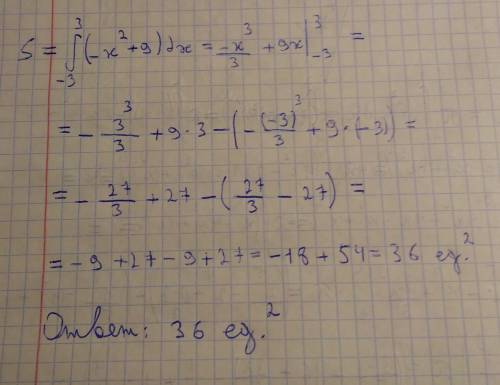 S = ∫₋₃³ (-x² + 9) dx = -x³/3 + 9x |₋₃³ =
= - 3³/3 + 9·3 - (- (-3)³/3 + 9·(-3)) =
= - 27/3 + 27 - (27/3 - 27) =
= -9 + 27 - 9 + 27 = -18 + 54 = 36 ед.²
Ответ: 36 ед.²